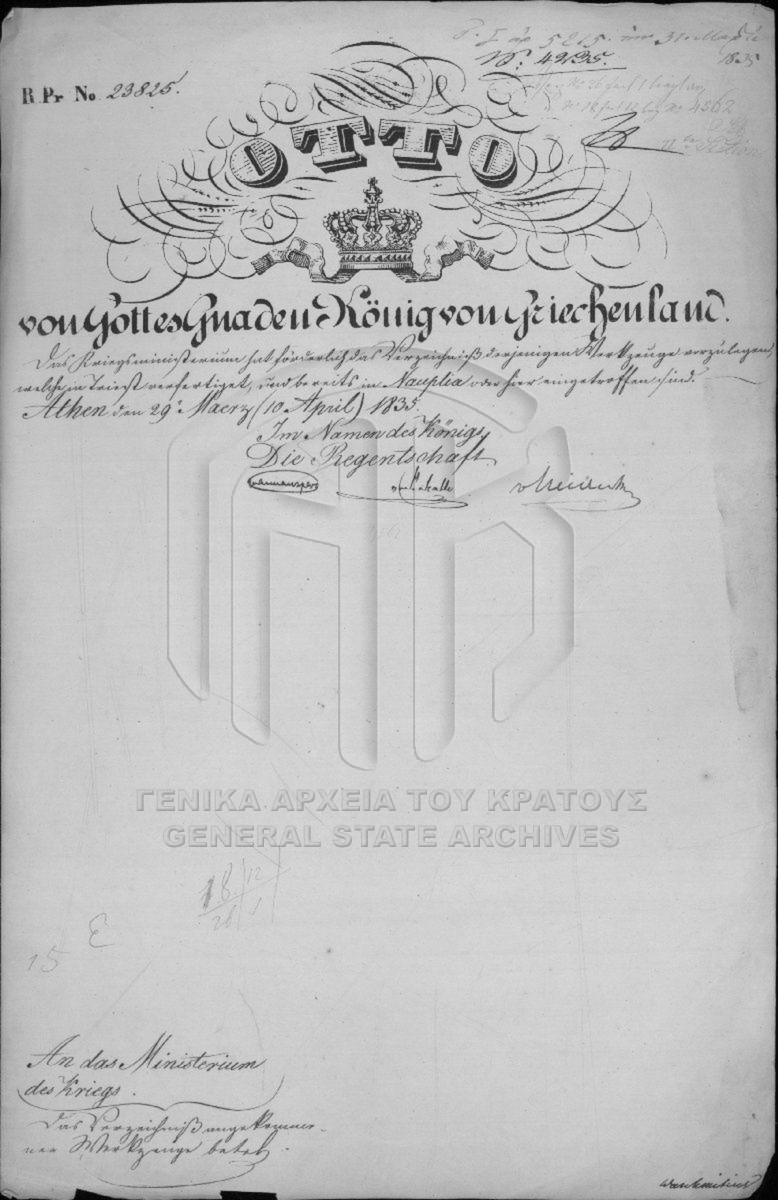 R. Pr No. 23825.
5215.
31.
1835
No. 4935.
4562
OTTO
von Gottes Gnaden König von Griechenland.
Das Kriegsministerium hat förderlich das Verzeichniß derjenigen Werkzeuge vorzulegen,
welche in Triest verfertiget, und bereits in Nauplia oder hier eingetroffen sind.
Athen den 29 Maerz (10 April) 1835.
Im Namen des Königs
Die Regentschaft
ΓΕΝΙΚΑ ΑΡΧΕΙΑ ΤΟΥ ΚΡΑΤΟΥΣ
GENERAL STATE ARCHIVES
18. 12
26 1
15 ε
An das Ministerium
des Kriegs.
Das Verzeichniß angekomme-
ner Werkzeuge betrf.